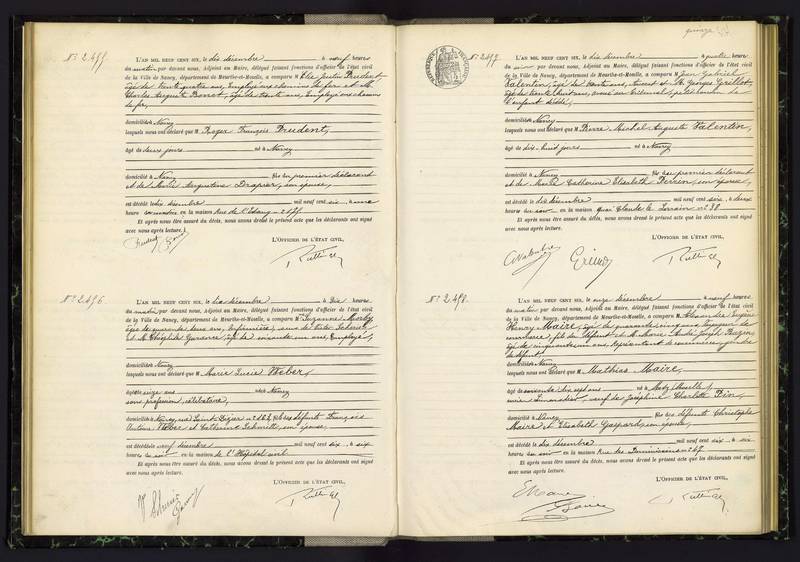 N° 2.495
L'AN MIL NEUF CENT SIX, le dix décembre à neuf heures
du matin par devant nous, Adjoint au Maire, délégué faisant fonctions d'officier de l'état civil
de la Ville de Nancy, département de Meurthe-et-Moselle, a comparu M Elie Justin Prudent,
âgé de trente quatre ans, Employé aux chemins de fer et M.
Charles Auguste Bonot, âgé de trente ans, Employé aux chemins
de fer,
domiciliés à Nancy
lesquels nous ont déclaré que M Roger François Prudent,
âgé de deux jours né à Nancy
domicilié à Nancy fils du premier déclarant
et de Marie Augustine Drapier, son épouse,
est décédé le dix décembre mil neuf cent six à une
heure du matin en la maison Rue de l'Etang n° 277.
Et après nous être assuré du décès, nous avons dressé le présent acte que les déclarants ont signé
avec nous après lecture.
L'OFFICIER DE L'ÉTAT CIVIL,
Prudent
N° 2.496
L'AN MIL NEUF CENT SIX, le dix décembre à dix heures
du matin par devant nous, Adjoint au Maire, délégué faisant fonctions d'officier de l'état civil
de la Ville de Nancy, département de Meurthe-et-Moselle, a comparu M Suzanne
âgée de quarante deux ans, Infirmière, veuve de Victor
et M. Théophile âgé de soixante un ans, Employé,
domiciliés à Nancy
lesquels nous ont déclaré que M Marie Lucie Weber,
âgée de seize ans née à Nancy
sans profession, célibataire,
domiciliée à Nancy, rue Saint Dizier n° fille des défunts François
Antoine Weber et Catherine Schmitt, son épouse,
est décédée le neuf décembre mil neuf cent six à six
heures du soir en la maison de l'Hôpital civil
Et après nous être assuré du décès, nous avons dressé le présent acte que les déclarants ont signé
avec nous après lecture.
L'OFFICIER DE L'ÉTAT CIVIL,
quinze
N° 2.497.
L'AN MIL NEUF CENT SIX, le dix décembre à quatre heures
du soir par devant nous, Adjoint au Maire, délégué faisant fonctions d'officier de l'état civil
de la Ville de Nancy, département de Meurthe-et-Moselle, a comparu M Jean Gabriel
Valentin, âgé de trente ans, et M. Georges Grillot,
âgé de trente huit ans, avoué au Tribunal,
l'enfant décédé,
domiciliés à Nancy
lesquels nous ont déclaré que M Pierre Michel Auguste Valentin,
âgé de dix-huit jours né à Nancy
domicilié à Nancy fils du premier déclarant
et de Marie Catherine Elisabeth Perrin, son épouse,
est décédé le dix décembre mil neuf cent six à deux
heures du soir en la maison Quai Claude le Lorrain n° 38
Et après nous être assuré du décès, nous avons dressé le présent acte que les déclarants ont signé
avec nous après lecture.
L'OFFICIER DE L'ÉTAT CIVIL,
N° 2.498.
L'AN MIL NEUF CENT SIX, le onze décembre à neuf heures
du matin par devant nous, Adjoint au Maire, délégué faisant fonctions d'officier de l'état civil
de la Ville de Nancy, département de Meurthe-et-Moselle, a comparu M Alexandre Eugène
Henry Maire, âgé de quarante cinq ans, Voyageur de
commerce, fils du défunt et M. Marie André Joseph
âgé de cinquante un ans, Représentant de commerce, gendre
du défunt,
domiciliés à Nancy
lesquels nous ont déclaré que M Mathias Maire,
âgé de soixante dix sept ans né à Metz (Moselle)
veuf de Joséphine Charlotte
domicilié à Nancy fils des défunts Christophe
Maire et Elisabeth Gaspard, son épouse,
est décédé le dix décembre mil neuf cent six à six
heures du soir en la maison Rue des Dominicains n° 47.
Et après nous être assuré du décès, nous avons dressé le présent acte que les déclarants ont signé
avec nous après lecture.
L'OFFICIER DE L'ÉTAT CIVIL,
EMaire